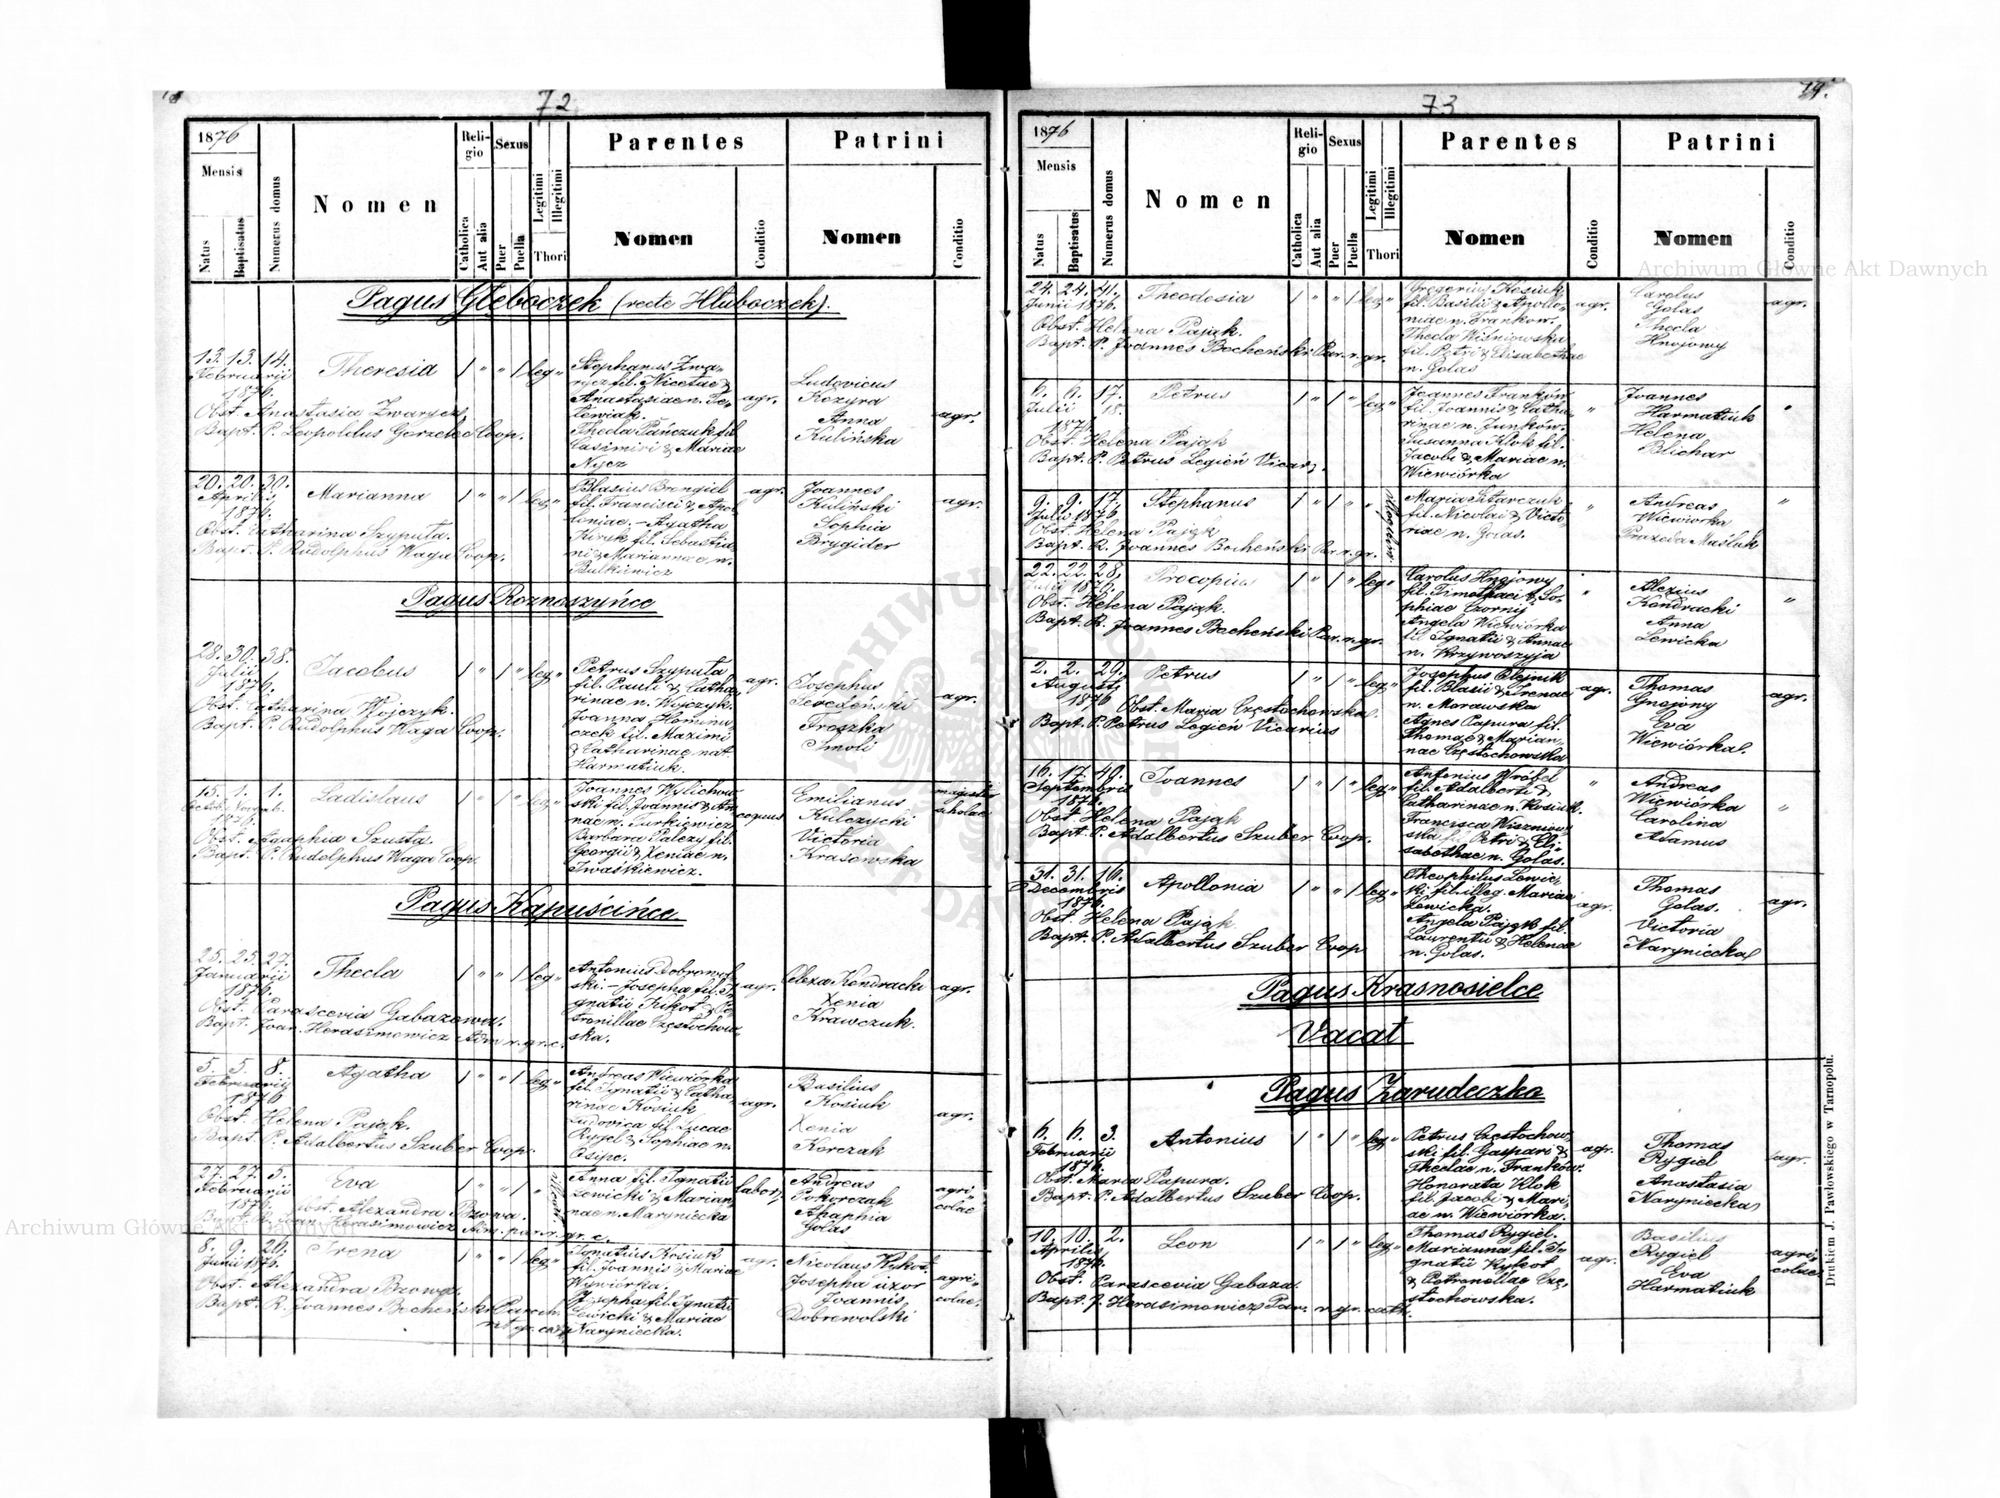 72
1876
Mensis
Natus
Baptisatus
Numerus domus
Nomen
Religio
Catholica
Aut alia
Sexus
Puer
Puella
Legitimi
Illegitimi
Thori
Parentes
Nomen
Conditio
Patrini
Nomen
Conditio
Pagus Głeboczek (recte Hłuboczek).
13. 13. 14.
Februarii
1876.
Theresia
leg.
Obst. Anastasia Zwarycz
Bapt. P. Leopoldus Gerzelec Coop.
Stephanus Zwa-
rycz fil. Nicetae &
Anastasiae n. Te-
lewiak.
Thecla Pańczuk fil.
Casimiri & Mariae
Nycz
agr.
Ludovicus
Kozyra
Anna
Kulińska
agr.
20. 20. 30.
Aprilis
1876.
Marianna
leg.
Obst. Catharina Szyputa.
Bapt. P. Rudolphus Waga Coop.
Blasius Brengiel
fil. Francisci & Apol-
loniae. – Agatha
fil. Sebastia-
ni & Mariannae n.
Butkiewicz
agr.
Joannes
Kuliński
Sophia
Brygider
agr.
Pagus Roznoszyńce
28. 30. 38.
Julii
1876.
Jacobus
leg.
Obst. Catharina Wojczyk.
Bapt. P. Rudolphus Waga Coop.
Petrus Szyputa
fil. Pauli & Catha-
rinae n. Wojczyk.
Joanna Homini-
czek fil. Maximi
& Catharinae nat.
Harmatiuk.
agr.
Josephus
Froszka
Smoli
agr.
15. 1. 1.
Octob. Novemb.
1876.
Ladislaus
leg.
Obst. Agaphia Szusta.
Bapt. P. Rudolphus Waga Coop.
Joannes Wylichow-
ski fil. Joannis & An-
nae n. Turkiewicz
Barbara Palczy fil.
Georgii & Xeniae n.
Iwaśkiewicz.
coquus
Emilianus
Kulczycki
Victoria
Krasowska
magister
scholae
Pagus Kapuścińce
25. 25. 27.
Januarii
1876.
Thecla
leg.
Obst. Parascevia Gabazowa.
Bapt. Joan. Herasimowicz Adm. r. gr. c.
Antonius Dobrowol-
ski. – Josepha fil. I-
gnatii Kikot & Pe-
tronillae Częstochow-
ska.
agr.
Olexa Kondracki
Xenia
Krawczuk.
agr.
5. 5. 8.
Februarii
1876
Agatha
leg.
Obst. Helena Pająk.
Bapt. P. Adalbertus Szuber Coop.
Andreas Wiewiórka
fil. Ignatii & Catha-
rinae Kosiuk
Ludovica fil. Lucae
Rygel & Sophiae n.
Osipc.
agr.
Basilius
Kosiuk
Xenia
Korczak
agr.
27. 27. 5.
Februarii
1876.
Eva
Obst. Alexandra Bzowa.
Bapt. Joan. Herasimowicz Adm. par. r. gr. c.
Anna fil. Ignatii
Lewicki & Marian-
nae n. Maryniecka
labor.
Andreas
Pokorczak
Ahaphia
Golas
agri-
colae
8. 9. 26.
Junii 1876.
Irena
leg.
Obst. Alexandra Bzowa.
Bapt. R. Joannes Bocheński Paroch.
rit. gr. cath.
Ignatius Kosiuk
fil. Joannis & Mariae
Wywiórka.
Josepha fil. Ignatii
Lewicki & Mariae
Naryniecka.
agr.
Nicolaus Wykot.
Josepha uxor
Joannis
Dobrowolski
agri-
colae.
73
74.
1876
Mensis
Natus
Baptisatus
Numerus domus
Nomen
Religio
Catholica
Aut alia
Sexus
Puer
Puella
Legitimi
Illegitimi
Thori
Parentes
Nomen
Conditio
Patrini
Nomen
Conditio
24. 24. 41.
Junii 1876.
Theodosia
leg.
Obst. Helena Pająk.
Bapt. P. Joannes Bocheński Par. r. gr.
Gregorius Kosiuk
fil. Basilii & Apollo-
niae n. Franków.
Thecla Wiśniowska
fil. Petri & Elisabethae
n. Golas
agr.
Carolus
Golas
Thecla
Hnojowy
agr.
6. 6. 17.
Julii 18.
1876.
Petrus
leg.
Obst. Helena Pająk
Bapt. P. Petrus Legień Vicar.
Joannes Franków
fil. Joannis & Catha-
rinae n. Junków.
Susanna Klok fil.
Jacobi & Mariae n.
Wiewiórka
Joannes
Harmatiuk
Helena
Blichar
9. 9. 17.
Julii 1876
Stephanus
illegitimi
Obst. Helena Pająk
Bapt. R. Joannes Bocheński Par. r. gr.
Maria Sitarczuk
fil. Nicolai & Victo-
riae n. Golas.
Andreas
Wiewiórka
Praxeda Maśluk
22. 22. 28.
Julii 1876.
Procopius
leg.
Obst. Helena Pająk.
Bapt. R. Joannes Bocheński Par. r. gr.
Carolus Hnojowy
fil. Timothaei & So-
phiae Czornij
Angela Wiewiórka
fil. Ignatii & Annae
n. Krzywoszyja
Alexius
Kondracki
Anna
Lewicka
2. 2. 29.
Augusti
1876
Petrus
leg.
Obst. Maria Częstochowska.
Bapt. P. Petrus Legień Vicarius
Josephus Olejnik
fil. Blasii & Irenae
n. Morawska
Agnes Papura fil.
Thomae & Marian-
nae Częstochowska
agr.
Thomas
Gnojowy
Eva
Wiewiórka.
agr.
16. 17. 49.
Septembris
1876.
Joannes
leg.
Obst. Helena Pająk
Bapt. P. Adalbertus Szuber Coop.
Antonius Wróbel
fil. Adalberti &
Catharinae n. Kosiuk.
Francisca Wiszniow-
ska fil. Petri & Eli-
sabethae n. Golas.
Andreas
Wiewiórka
Carolina
Adamus
31. 31. 16.
Decembris
1876.
Apollonia
leg.
Obst. Helena Pająk
Bapt. P. Adalbertus Szuber Coop
Theophilus Lewic-
ki fil. illeg. Mariae
Lewicka.
Angela Pająk fil.
Laurentii & Helenae
n. Golas.
agr.
Thomas
Golas.
Victoria
Naryniecka
agr.
Pagus Krasnosielce
Vacat
Pagus Zarudeczko
6. 6. 3.
Februarii
1876.
Antonius
leg.
Obst. Maria Papura.
Bapt. P. Adalbertus Szuber Coop.
Petrus Częstochow-
ski fil. Gaspari &
Theclae n. Franków.
Honorata Klok
fil. Jacobi & Mari-
ae n. Wiewiórka.
agr.
Thomas
Rygiel
Anastasia
Naryniecka
agr.
10. 10. 2.
Aprilis
1876.
Leon
leg.
Obst. Parascevia Gabaza.
Bapt. J. Herasimowicz Par. r. gr. cath.
Thomas Rygiel.
Marianna fil. I-
gnatii Kykot
& Petronellae Czę-
stochowska.
agr.
Basilius
Rygiel
Eva
Harmatiuk
agri-
colae
Drukiem J. Pawłowskiego w Tarnopolu.
Archiwum Główne Akt Dawnych
Archiwum Główne Akt Dawnych